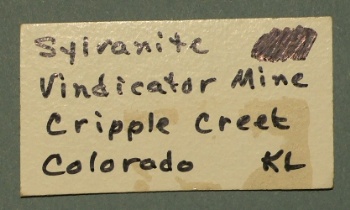 Sylvanite
Vindicator Mine
Cripple Creek
Colorado KL